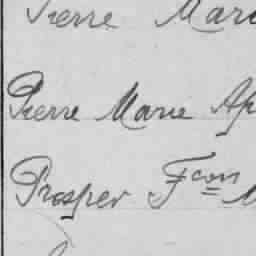 Pierre Mari
Pierre Marie Ap
Prosper Fcois